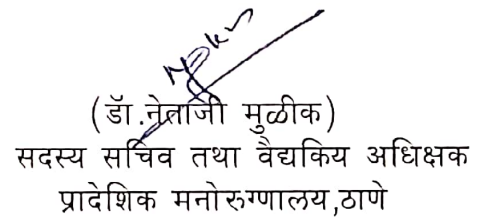 (डॉ.नेताजी मुळीक)
सदस्य सचिव तथा वैद्यकिय अधिक्षक
प्रादेशिक मनोरुग्णालय,ठाणे